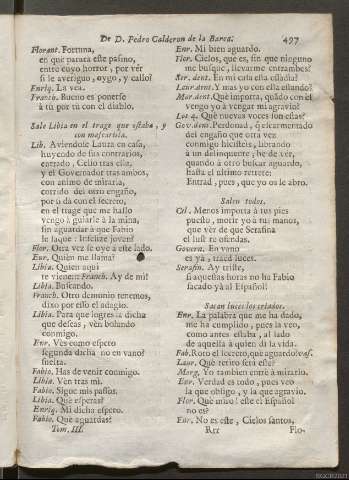 De D. Pedro Calderon de la Barca.
497
Florent. Fortuna,
en que parará este pasmo,
entre cuyo horror, por vér
si le averiguo, oygo, y callo?
Enriq. La vea.
Franch. Bueno es ponerse
à tù por tù con el diablo.
Sale Libia en el trage que estaba, y
con mascarilla.
Lib. Aviendose Laura en casa,
huyendo de sus contrarios,
entrado, Celio tras ella,
y el Governador tras ambos,
con animo de mirarla,
corrido del otro engaño,
por si dà con el secreto,
en el trage que me hallo
vengo à guiarle à la mina,
sin aguardar à que Fabio
le saque: Infelize joven!
Flor. Otra vez se oye à este lado.
Enr. Quien me llama?
Libia. Quien aqui
te viene: Franch. Ay de mi!
Libia. Buscando.
Franch. Otro demonio tenemos,
dixo por esso el adagio.
Libia. Para que logres la dicha
que deseas, vèn bolando
conmigo.
Enr. Ves como espero
segunda dicha no en vano?
suelta.
Fabio. Has de venir conmigo.
Libia. Vèn tras mi.
Fabio. Sigue mis passos.
Libia. Què esperas?
Enriq. Mi dicha espero.
Fabio. Què aguardas?
Tom. III.
Enr. Mi bien aguardo.
Flor. Cielos, que es, sin que ninguno
me busque, llevarme entrambes?
Ser. dent. En mi casa espadas?
Laur. dent. Y mas yo con ella estando?
Mar. dent. Què importa, quàdo con èl
vengo yo à vengar mi agravio?
Los 4. Què nuevas voces son estas?
Gov. dent. Perdonad, q̃ escarmentado
del engaño que otra vez
conmigo hicisteis, librando
à un delinquente, he de vèr,
quando à otro buscar aguardo,
hasta el ultimo retrete:
Entrad, pues, que yo os le abro.
Salen todos.
Cel. Menos importa à tus pies
puesto, morir yo à tus manos,
que vèr de que Serafina
el lustre ofendas.
Govern. En vano
es yà, traed luces.
Serafin. Ay triste,
si aquestas horas no ha Fabio
sacado yà al Español!
Sacan luces los criados.
Enr. La palabra que me ha dado,
me ha cumplido, pues la veo,
como antes estaba, al lado
de aquella à quien dì la vida.
Fab. Roto el secreto, què aguardo? vas.
Laur. Què retiro serà este?
Marg. Yo tambien entrè à mirarlo.
Enr. Verdad es todo, pues veo
la que obligo, y la que agravio.
Flor. Què miro! este el Español
no es?
Enr. No es este, Cielos santos,
Rrr
Flo-